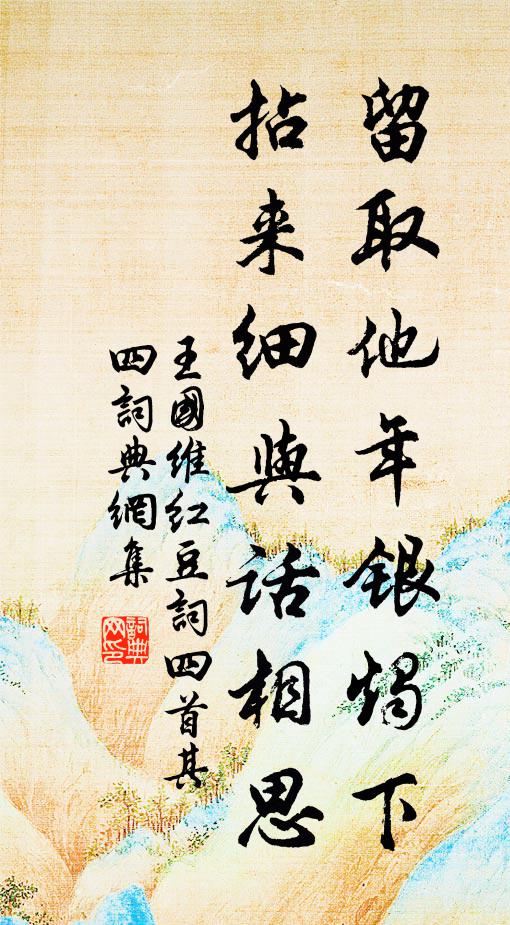 留取他年银烛下
拈来细与话相思
王國维红豆詞四首其
四詞典網集
詞典
网印